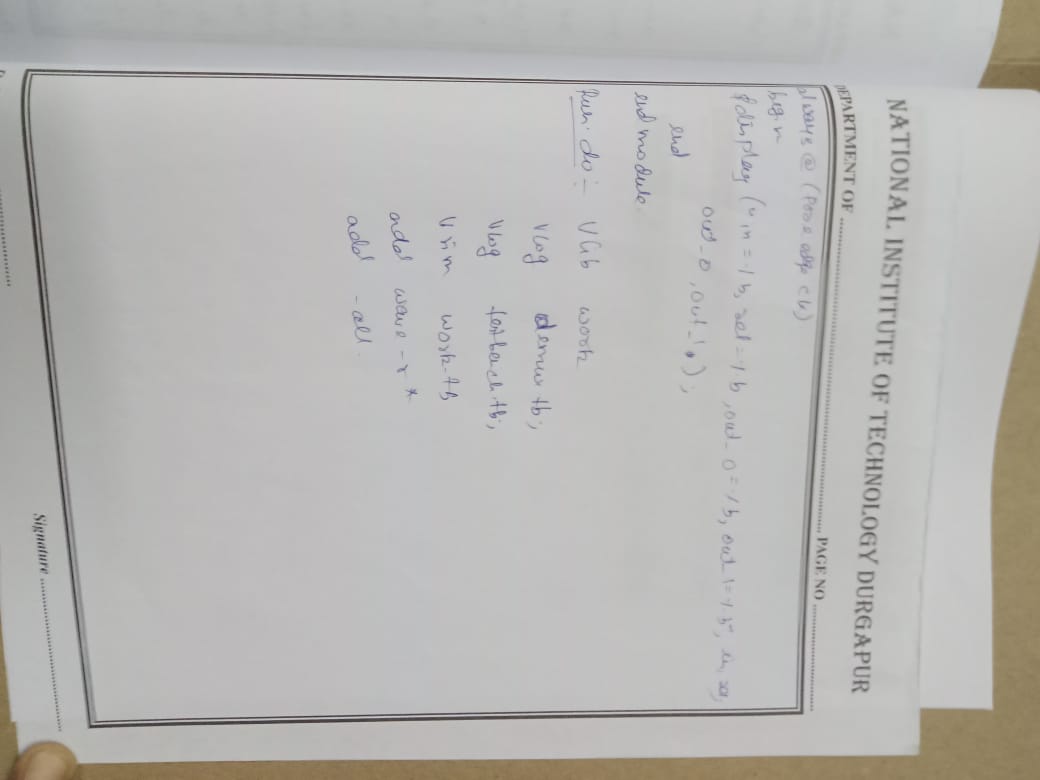 NATIONAL INSTITUTE OF TECHNOLOGY DURGAPUR
DEPARTMENT OF ........................ PAGE NO ............
always @ (posedge clk)
begin
$display ("in = %b, sel = %b, out_0 = %b, out 1 = %b", in, sel,
out_0, out_1);
end
endmodule.
Run.do :-
Vlib work
Vlog demux tb;
Vlog testbench tb;
Vsim work.tb
add wave -r *
add -all.
Signature ........................